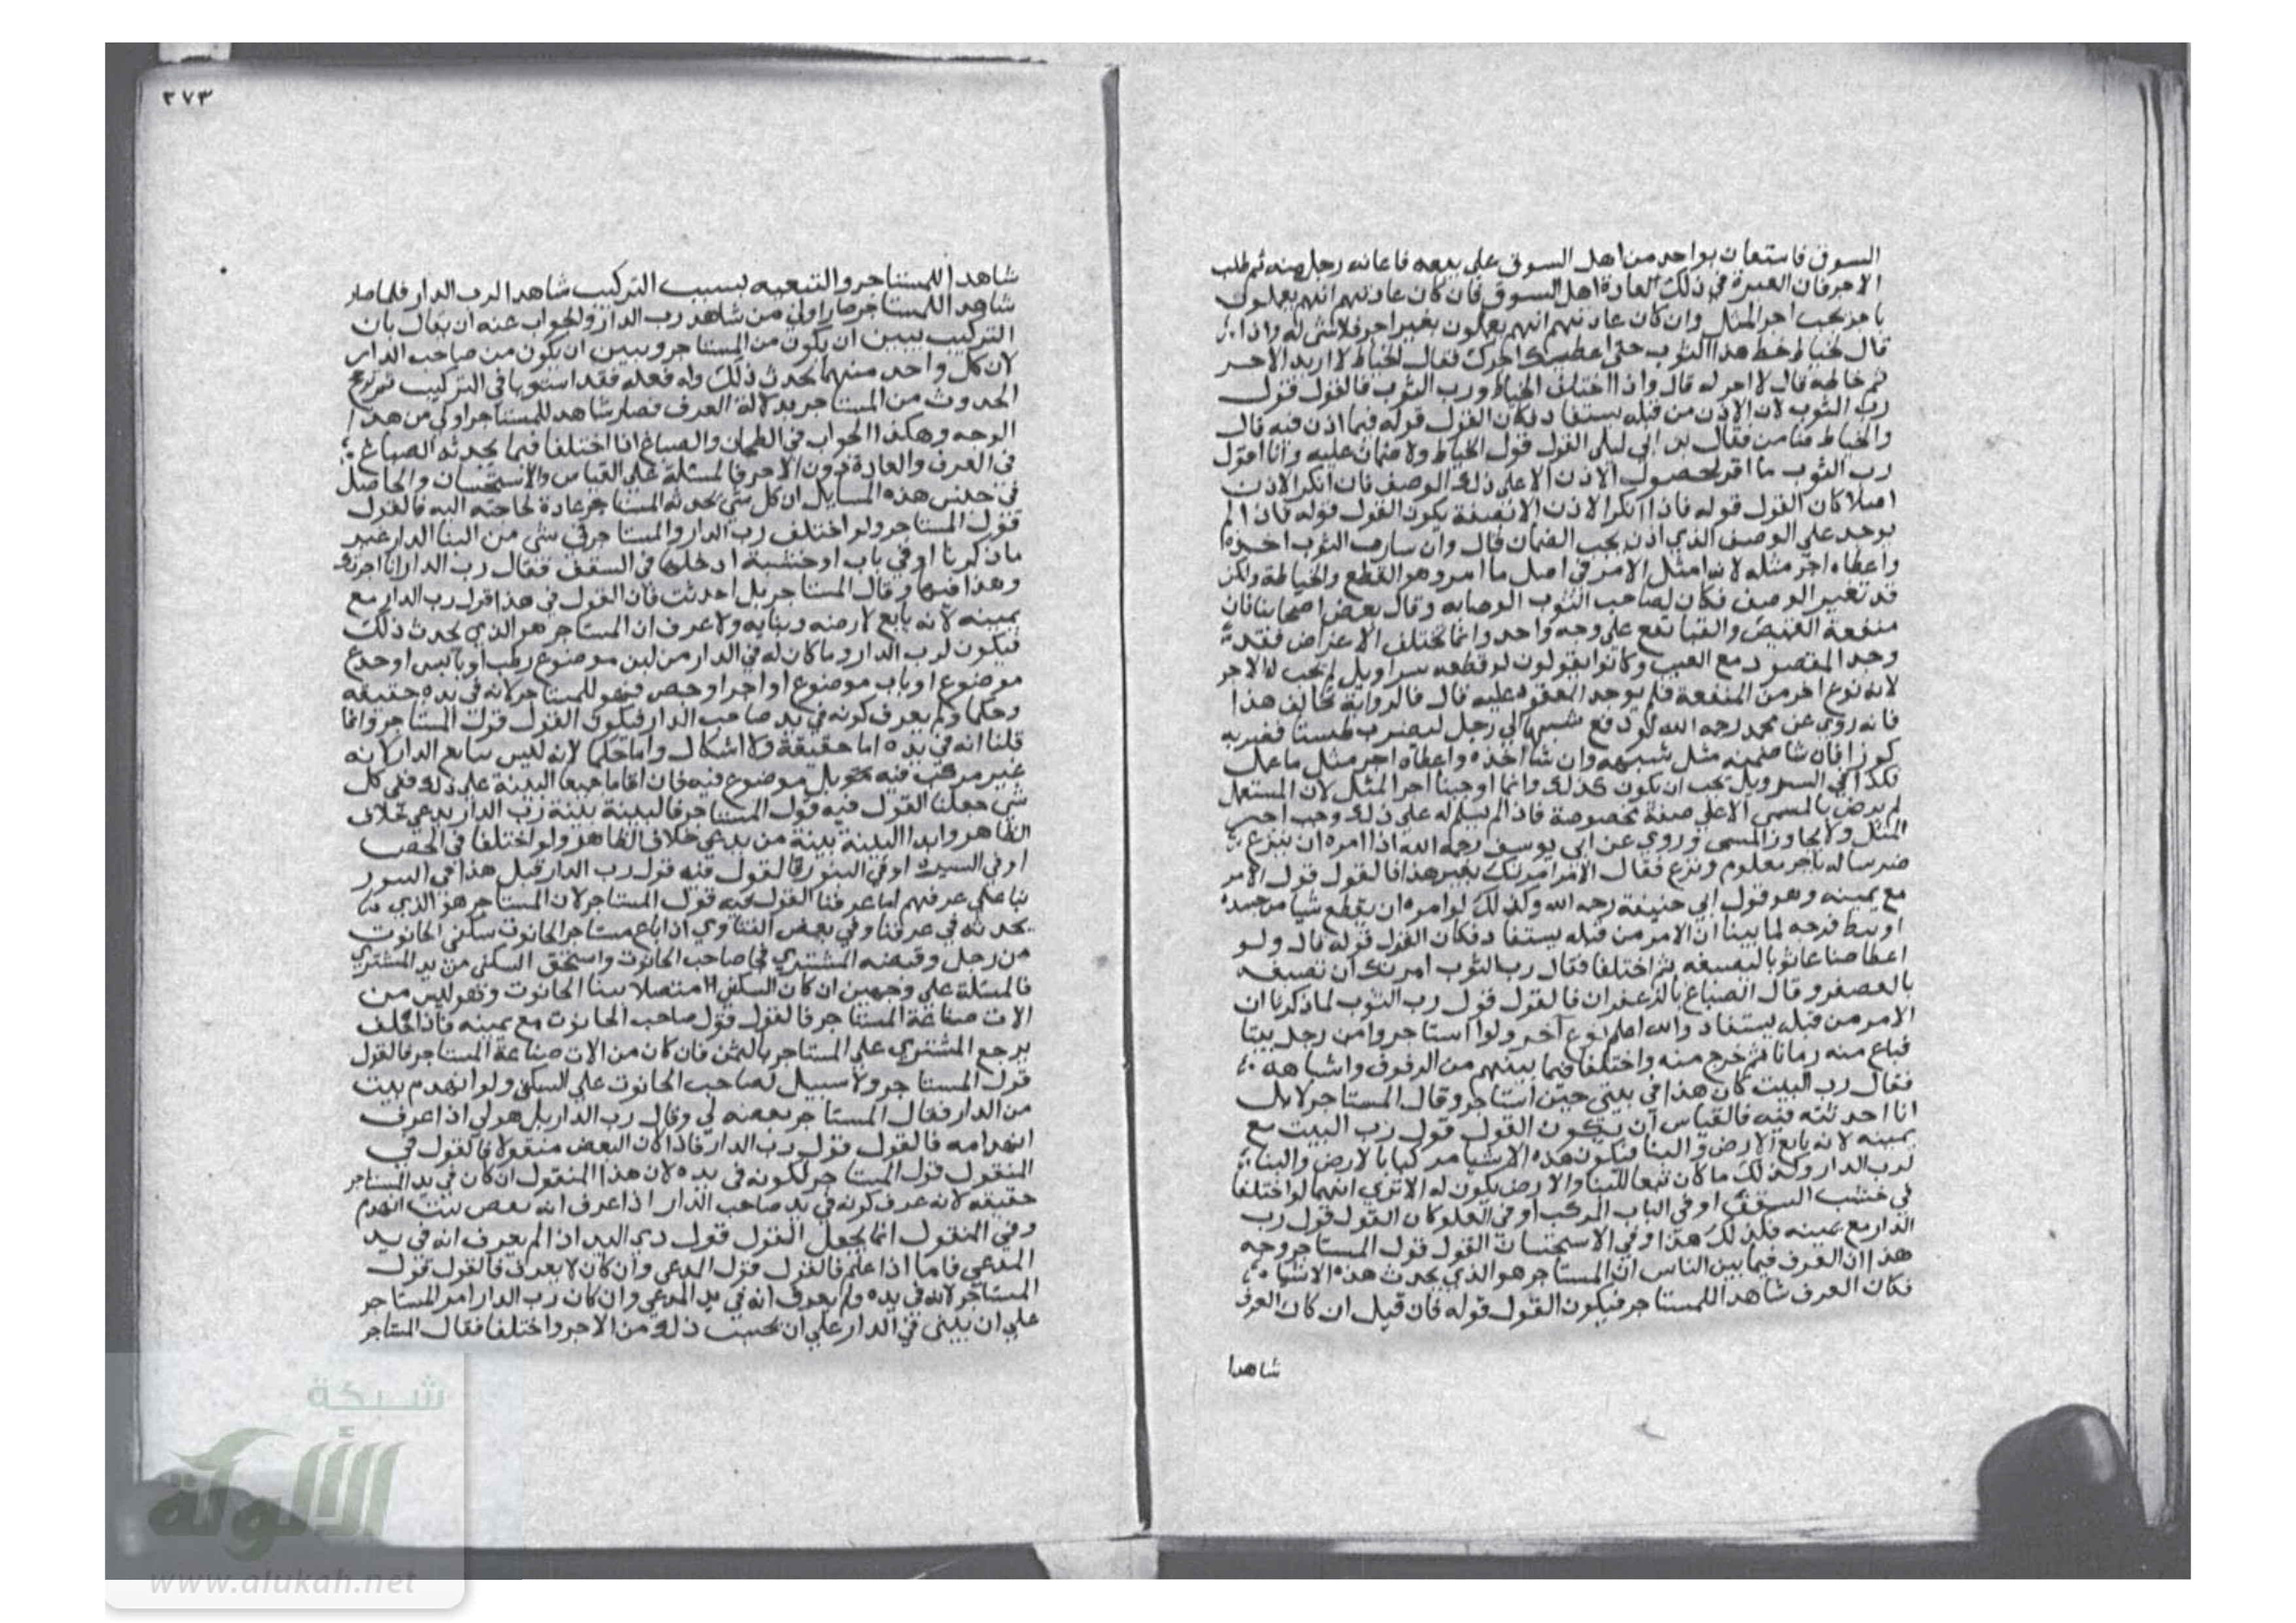 السوق فاستعان بواحد من اهل السوق على بيعه فاعانه رجل منه ثم طلب
الاجر فان العبرة في ذلك لعادة اهل السوق فان كان عادتهم انهم يعملون
باجر يجب اجر المثل وان كان عادتهم انهم يعملون بغير اجر فلا شي له واذا
قال لخياط خط هذا الثوب حتى اعطيك اجرك فقال الخياط لا اريد الاجر
ثم خاطه قال لا اجر له قال واذا اختلف الخياط ورب الثوب فالقول قول
رب الثوب لان الاذن من قبله يستفاد فكان القول قوله فيما اذن فيه قال
والخياط ضامن فقال بن ابي ليلى القول قول الخياط ولا ضمان عليه وانا اقول
رب الثوب ما اقر بحصول الاذن الا على ذلك الوصف فان انكر الاذن
اصلا كان القول قوله فاذا انكر الاذن الا بصفة يكون القول قوله فاذا لم
يوجد على الوصف الذي اذن يجب الضمان قال وان شا رب الثوب اخذه
واعطاه اجر مثله لانه امتثل الامر في اصل ما امر وهو القطع والخياطة ولكن
قد تغير الوصف فكان لصاحب الثوب الرضا به وقال بعض اصحابنا فان
منفعة القميص والقبا تقع على وجه واحد وانما تختلف الاعراض فقد
وجد المقصود مع العيب وكانوا يقولون لو قطعه سراويل لم يجب له الاجر
لانه نوع اخر من المنفعة فلم يوجد المعقود عليه قال فالرواية تخالف هذا
فانه روي عن محمد رحمه الله لو دفع شبها الى رجل ليضرب طستا فضربه
كوزا فان شا ضمنه مثل شبهه وان شا اخذه واعطاه اجر مثل ما عمل
فكذا في السراويل يجب ان يكون كذلك وانما اوجبنا اجر المثل لان المستعمل
لم يرض بالمسمى الا على صفة مخصوصة فاذا لم يسلم له على ذلك وجب اجر
المثل ولا يجاوز المسمى وروي عن ابي يوسف رحمه الله اذا امره ان ينزع
ضرسا له باجر معلوم ونزع فقال الامر امرتك بغير هذا فالقول قول الامر
مع يمينه وهو قول ابي حنيفة رحمه الله وكذلك لو امره ان يقطع شيا من جسده
او يبط قرحه لما بينا ان الامر من قبله يستفاد فكان القول قوله قال ولو
اعطا صباغا ثوبا ليصبغه ثم اختلفا فقال رب الثوب امرتك ان تصبغه
بالعصفر وقال الصباغ بالزعفران فالقول قول رب الثوب لما ذكرنا ان
الامر من قبله يستفاد والله اعلم نوع آخر ولو استاجر من رجل بيتا
فباع منه زمانا ثم خرج منه واختلفا فيما بينهم من الرفوف واشباهه
فقال رب البيت كان هذا في بيتي حين استاجر وقال المستاجر لا بل
انا احدثته فيه فالقياس ان يكون القول قول رب البيت مع
يمينه لانه تابع الارض والبنا فيكون هذه الاشيا مركبا بالارض والبنا
لرب الدار وكذلك ما كان تبعا للبنا والارض يكون له الا ترى انهما لو اختلفا
في خشب السقف او في الباب المركب او في الغلق كان القول قول رب
الدار مع يمينه فكذلك هذا وفي الاستحسان القول قول المستاجر وجه
هذا ان العرف فيما بين الناس ان المستاجر هو الذي يحدث هذه الاشيا
فكان العرف شاهدا للمستاجر فيكون القول قوله فان قيل ان كان العرف
شاهدا
٢٧٣
شاهدا للمستاجر والتبعيه بسبب التركيب شاهدا لرب الدار فلما صار
شاهدا للمستاجر صار اولى من شاهد رب الدار والجواب عنه ان يقال بان
التركيب يبين ان يكون من المستاجر ويبين ان يكون من صاحب الدار
لان كل واحد منهما يحدث ذلك وله فعله فقد استويا في التركيب ثم ترجح
الحدوث من المستاجر بدلالة العرف فصار شاهد للمستاجر اولى من هذا
الوجه وهكذا الجواب في الطحان والصباغ اذا اختلفا فيما يحدثه الصباغ
في العرف والعادة دون الاجر فالمسئلة على القياس والاستحسان والحاصل
في جنس هذه المسايل ان كل شي يحدثه المستاجر عادة لحاجته اليه فالقول
قول المستاجر ولو اختلف رب الدار والمستاجر في شي من البنا الدار غير
ما ذكرنا او في باب او خشبة ادخلها في السقف فقال رب الدار انا اجرتك
وهذا فيها وقال المستاجر بل احدثت فان القول في هذا قول رب الدار مع
يمينه لانه تابع لارضه وبنايه ولا عرف ان المستاجر هو الذي يحدث ذلك
فيكون لرب الدار وما كان له في الدار من لبن موضوع رطب او يابس او جذع
موضوع او باب موضوع او اجر او جص فهو للمستاجر لانه في يده حقيقه
وحكما ولم يعرف كونه في يد صاحب الدار فيكون القول قول المستاجر وانما
قلنا انه في يده اما حقيقة فلا اشكال واما حكما لانه ليس بتابع الدار لانه
غير مركب فيه بل موضوع فيه فان اقاما جميعا البينة على ذلك ففي كل
شي جعلنا القول فيه قول المستاجر فالبينة بينة رب الدار يدعي خلاف
الظاهر وابدا البينة بينة من يدعي خلاف الظاهر ولو اختلفا في الجص
او في السترة او في التنور فالقول فيه قول رب الدار قبل هذا في التنور
بنا على عرفهم اما عرفنا القول فيه قول المستاجر لان المستاجر هو الذي
يحدثه في عرفنا وفي بعض الفتاوي اذا باع مستاجر الحانوت سكنى الحانوت
من رجل وقبضه المشتري فجا صاحب الحانوت واستحق السكنى من يد المشتري
فالمسئلة على وجهين ان كان السكنى متصلا ببنا الحانوت وهو ليس من
الات صناعة المستاجر فالقول قول صاحب الحانوت مع يمينه فاذا حلف
يرجع المشتري على المستاجر بالثمن فان كان من الات صناعة المستاجر فالقول
قول المستاجر ولا سبيل لصاحب الحانوت على السكنى ولو انهدم بيت
من الدار فقال المستاجر بعضه لي وقال رب الدار بل هو لي اذا عرف
انهدامه فالقول قول رب الدار فاذا كان البعض منقولا فالقول في
المنقول قول المستاجر لكونه في يده لان هذا المنقول ان كان في يد المستاجر
حقيقه لانه عرف كونه في يد صاحب الدار اذا عرف انه بعض بيت انهدم
وفي المنقول انما يجعل القول قول ذي اليد اذا لم يعرف انه في يد
المدعي فاما اذا علم فالقول قول المدعي وان كان لا يعرف فالقول قول
المستاجر لانه في يده ولم يعرف انه في يد المدعي وان كان رب الدار امر المستاجر
على ان يبنى في الدار على ان يحسب ذلك من الاجر واختلفا فقال المستاجر
شبكة
الألوكة
www.alukah.net